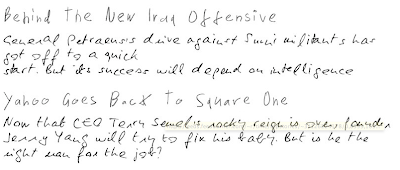 Behind The New Iraq Offensive
General Petraeus's drive against Sunni militants has
got off to a quick
start. But its success will depend on intelligence
Yahoo Goes Back To Square One
Now that CEO Terry Semel's rocky reign is over, founder
Jerry Yang will try to fix his baby. But is he the
right man for the job?